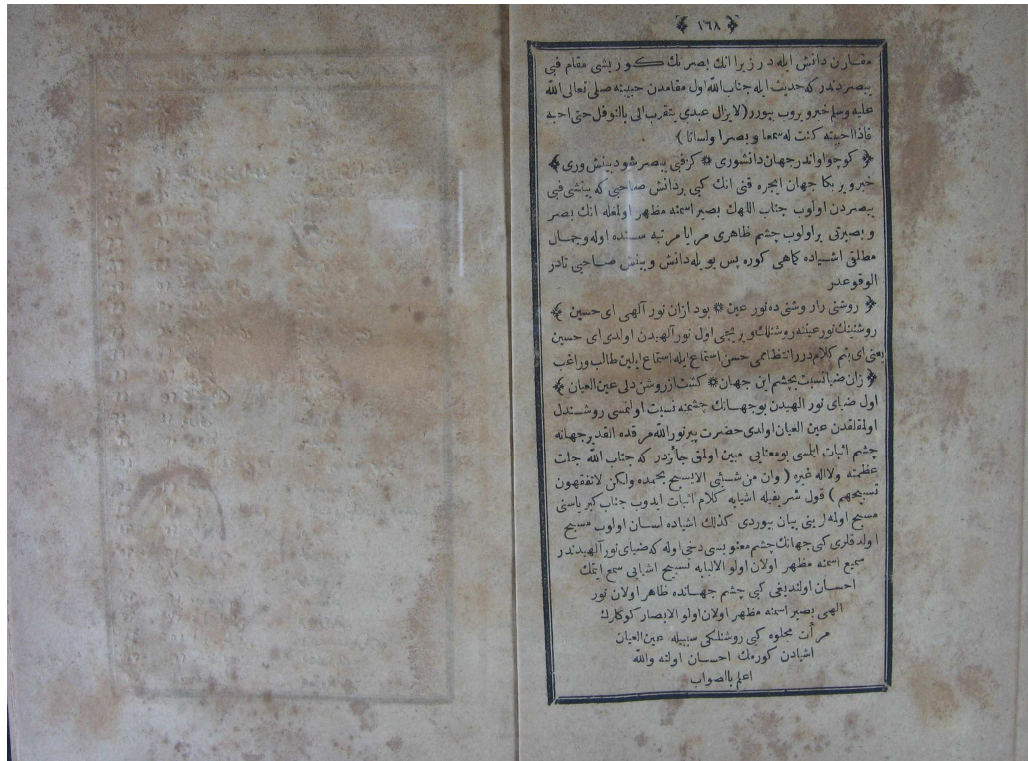 ﴿ ١٦٨ ﴾
مقارن دانش ايله در زيرا انك بصرنك كوريشى مقام فبى
يبصردندر كه حديث ايله جناب الله اول مقامدن حبيبنه صلى تعالى الله
عليه وسلم خبر ويروب بيورر (لا يزال عبدى يتقرب الى بالنوفل حتى احبه
فاذا احببته كنت له سمعا وبصرا ولسانا )
﴿ كوچواواندر جهان دانشورى * كزفبى يبصر شود بينش ورى ﴾
خبر وير بكا جهان ايچره قنى انك كبى بردانش صاحبى كه بينشى فبى
يبصردن اولوب جناب اللهك بصير اسمنه مظهر اولمغله انك بصر
و بصيرتى براولوب چشم ظاهرى مرايا مرتبه سنده اوله وجمال
مطلقى اشياده كماهى كوره پس بويله دانش وبينش صاحبى نادر
الوقوعدر
﴿ روشنى را روشنى ده نور عين * بود ازان نور آلهى اى حسين ﴾
روشنينك نور عيننه روشنلك ويريجى اول نور آلهيدن اولدى اى حسين
يعنى اى بنم كلام درر انتظاممى حسن استماع ايله استماع ايلين طالب وراغب
﴿ زان ضيا نسبت بچشم اين جهان * كشت از روشن دلى عين العيان ﴾
اول ضياى نور الهيدن بوجهانك چشمنه نسبت اولنمسى روشندل
اولمقلقدن عين العيان اولدى حضرت پير نور الله مرقده القدير جهانه
چشم اثبات ايلمسى بومعنايى مبين اولمق جائزدر كه جناب الله جلت
عظمته ولااله غيره ( وان من شىء الايسبح بحمده ولكن لاتفقهون
تسبيحهم ) قول شريفيله اشيايه كلام اثبات ايدوب جناب كبرياسنى
مسبح اولمه لرينى بيان بيوردى كذلك اشياده لسان اولوب مسبح
اولدقلرى كبى جهانك چشم معنويسى دخى اوله كه ضياى نور آلهيدندر
سميع اسمنه مظهر اولان اولو الالبابه تسبيح اشيايى سمع ايتمك
احسان اولنديغى كبى چشم جهانده ظاهر اولان نور
الهى بصير اسمنه مظهر اولان اولو الابصار كوكلرك
مرأت مجلوه كبى روشنلكى سببيله عين العيان
اشيادن كورمك احسان اولنه والله
اعلم بالصواب